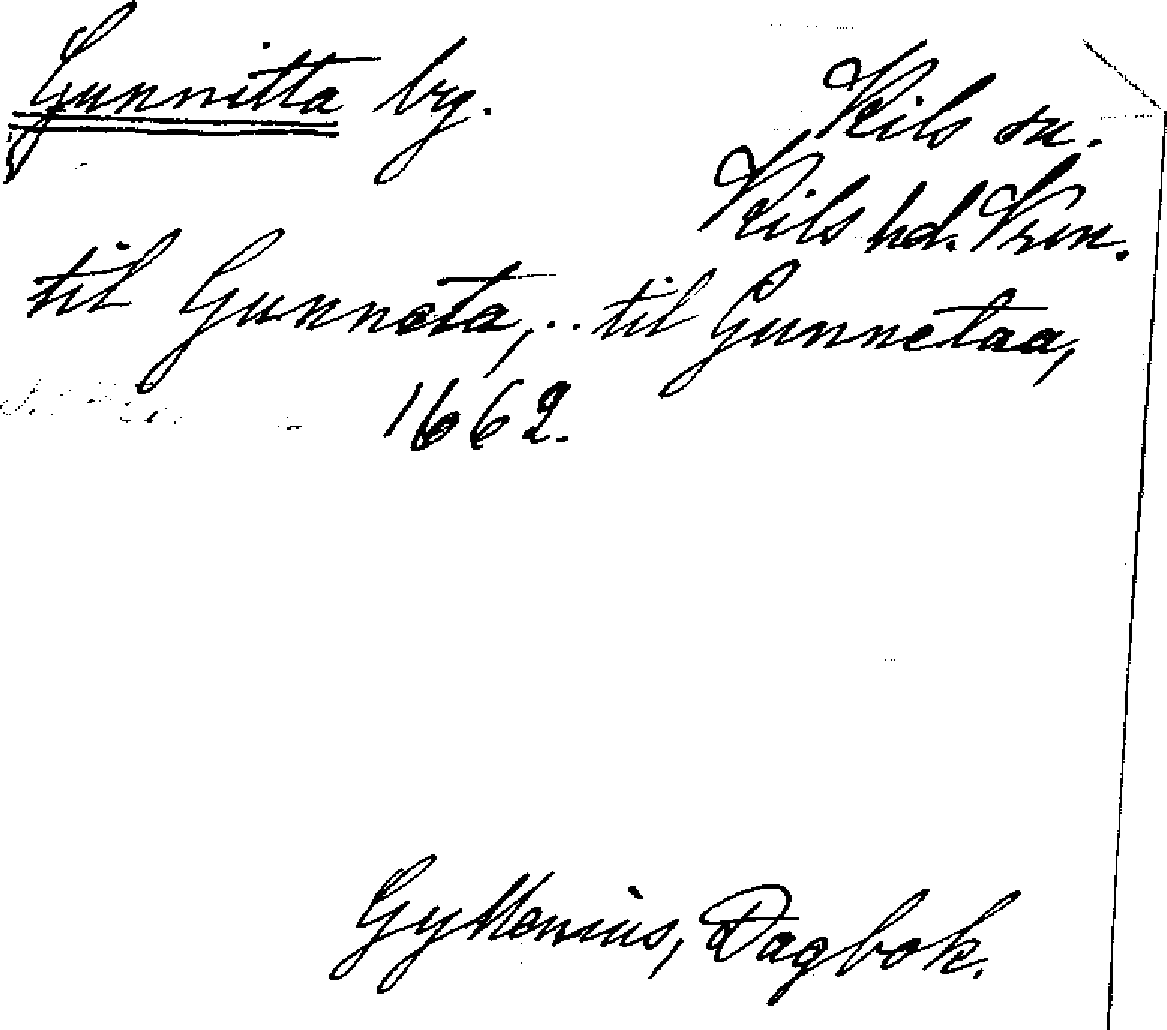 Gunnitta by.
Kils sn.
Kils hd. Vrm.
til Gunneta, .. til Gunnetaa,
1662.
Gyllenius, Dagbok.